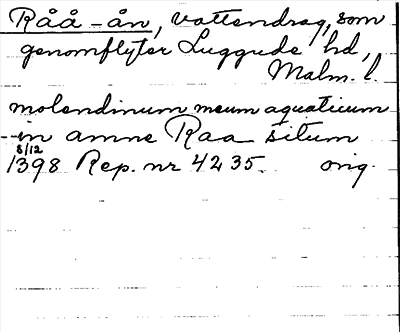 Råå-ån, vattendrag, som
genomflyter Luggude hd,
Malm. l.
molendinum meum aquaticum
in amne Raa situm
8/12
1398 Rep. nr 4235. orig.